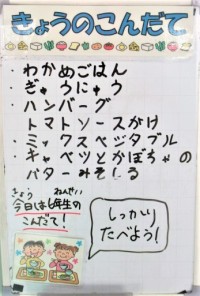 きょうのこんだて
・わかめごはん
・ぎゅうにゅう
・ハンバーグ
トマトソースがけ
・ミックスベジタブル
・キャベツとかぼちゃの
バターみそしる
きょう ねんせい
今日は6年生の
こんだて！
しっかり
たべよう！